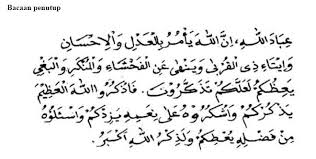 Bacaan penutup
عِبَادَ اللهِ، اِنَّ اللهَ يَأْمُرُ بِالْعَدْلِ وَاْلاِحْسَانِ
وَاِيْتَاءِ ذِى الْقُرْبَى وَيَنْهَى عَنِ الْفَحْشَاءِ وَالْمُنْكَرِ وَالْبَغْىِ
يَعِظُكُمْ لَعَلَّكُمْ تَذَكَّرُوْنَ. فَاذْكُرُوا اللهَ الْعَظِيْمَ
يَذْكُرْكُمْ وَاشْكُرُوْهُ عَلَى نِعَمِهِ يَزِدْكُمْ وَاسْئَلُوْهُ
مِنْ فَضْلِهِ يُعْطِكُمْ وَلَذِكْرُ اللهِ اَكْبَرُ.